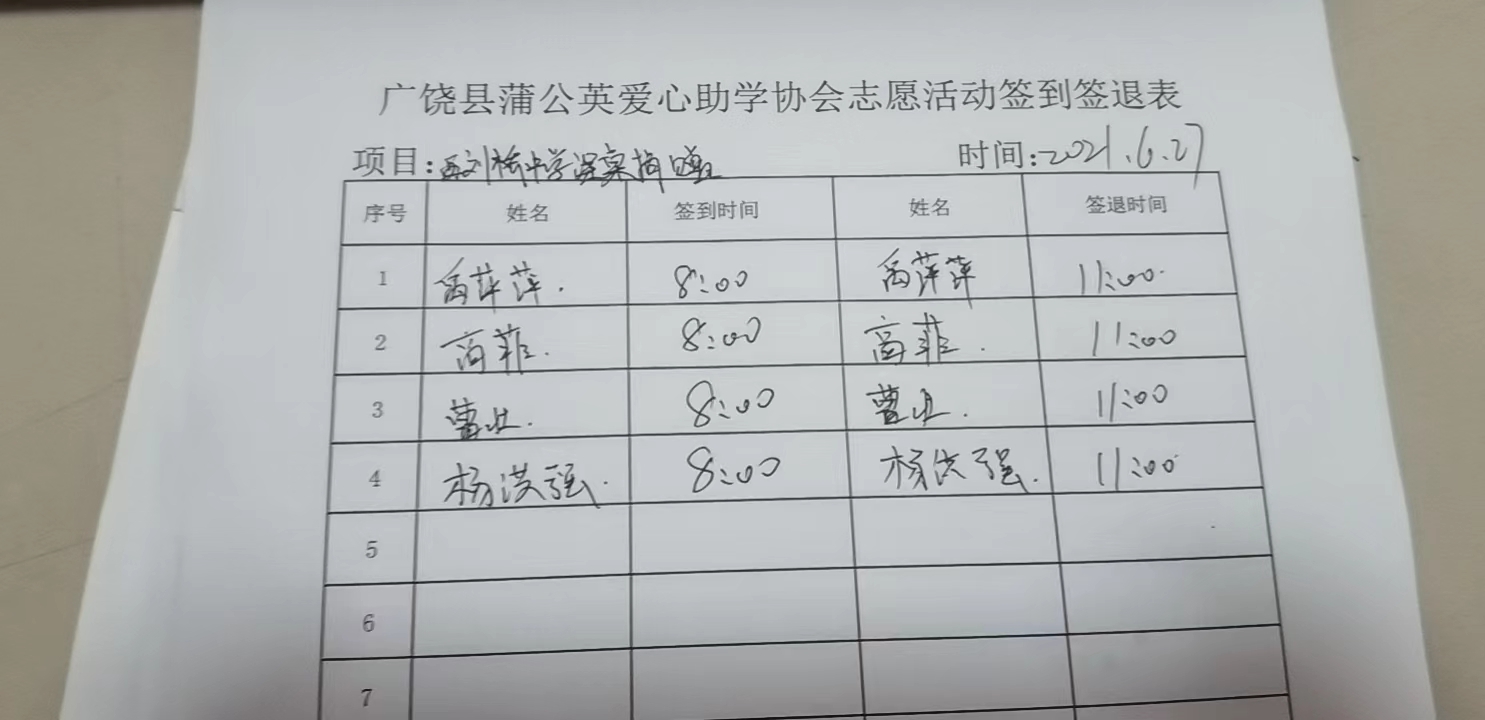 广饶县蒲公英爱心助学协会志愿活动签到签退表
项目: 刘桥中学 捐赠 时间:2021.6.27
序号 姓名 签到时间 姓名 签退时间
1 禹萍萍. 8:00 禹萍萍 11:00.
2 高菲. 8:00 高菲. 11:00
3 曹业. 8:00 曹业. 11:00
4 杨洪强. 8:00 杨洪强. 11:00
5
6
7